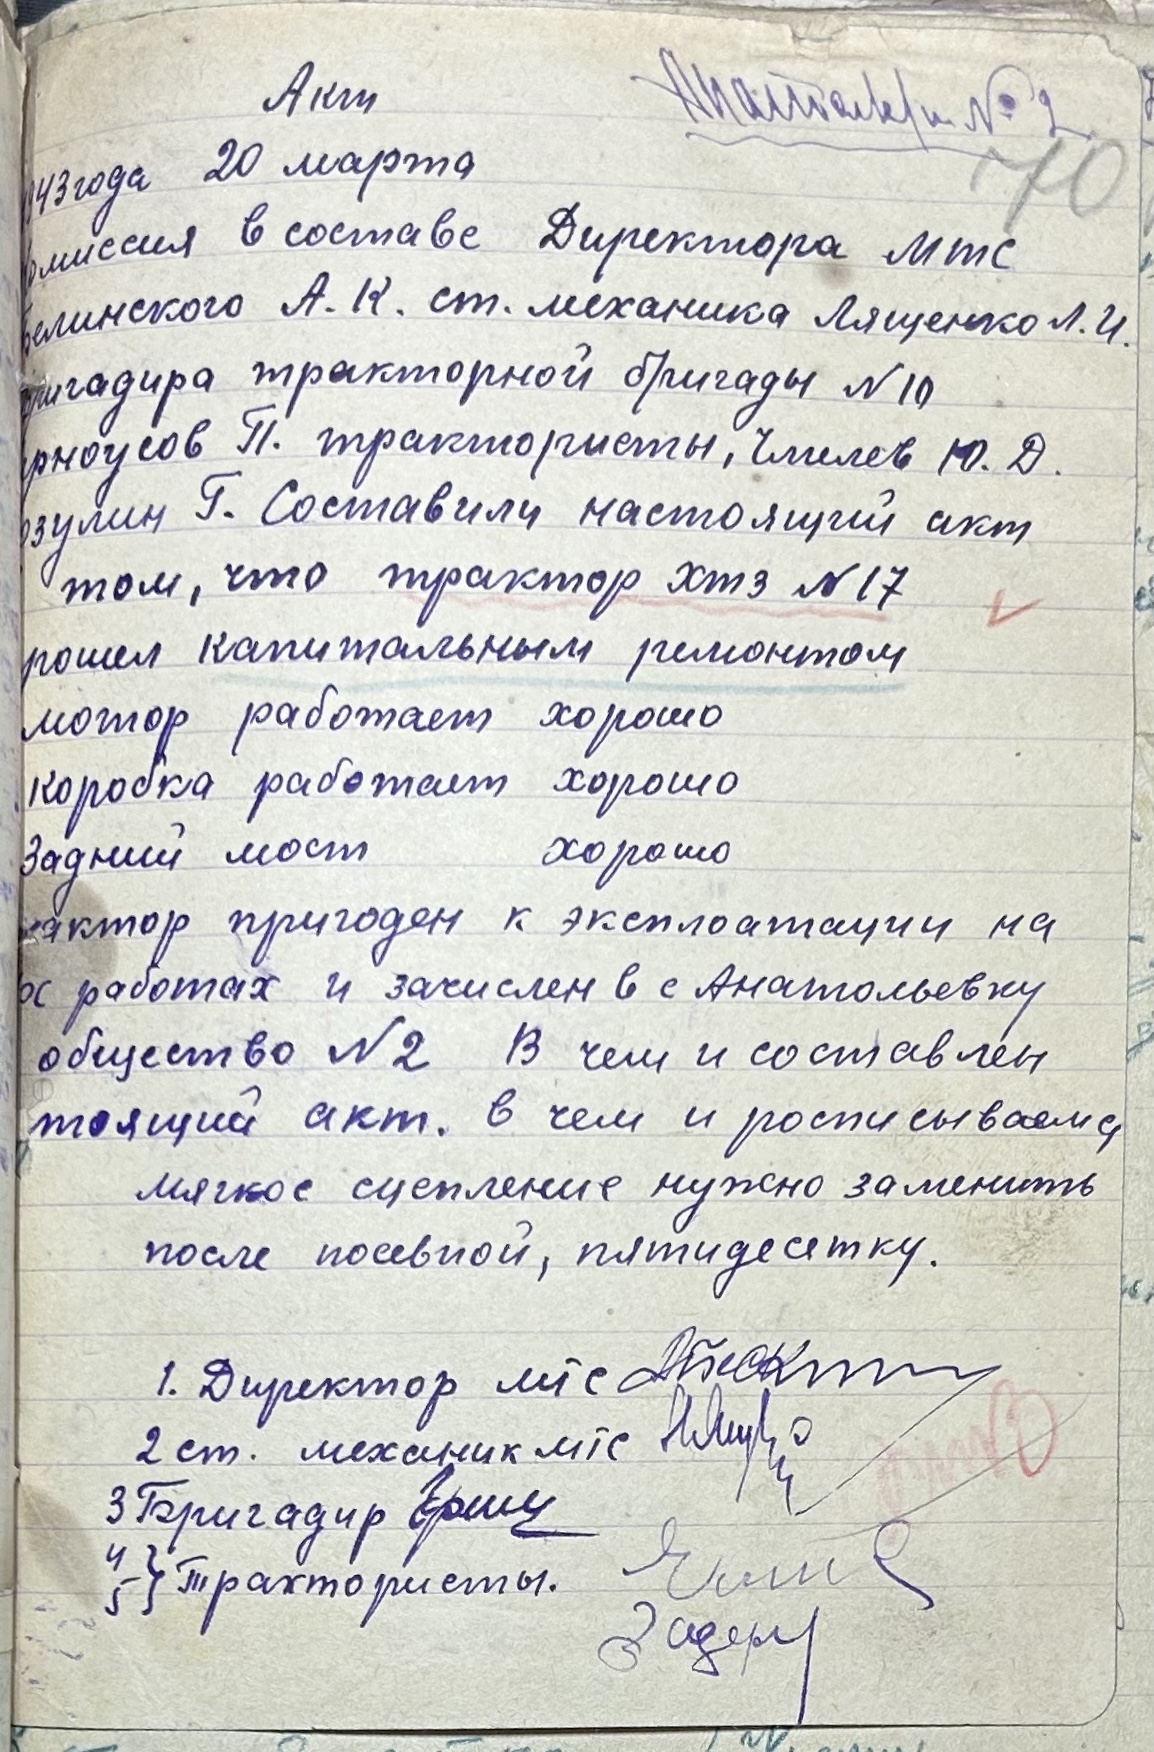 Акт
Анатольевка № 2
70
1943 года 20 марта
омиссия в составе Директора МТС
елинского А.К. ст. механика Лященко Л.И.
ригадира тракторной бригады N 10
рноусов П. трактористы, Чмилев Ю.Д.
озулин Г. Составили настоящий акт
том, что трактор ХТЗ N 17
рошел капитальным ремонтом
мотор работает хорошо
коробка работает хорошо
Задний мост хорошо
актор пригоден к эксплоатации на
ос работах и зачислен в с Анатольевку
общество N 2 В чем и составлен
тоящий акт. в чем и росписываемся
мягкое сцепление нужно заменить
после посевной, пятидесетку.
1. Директор МТС
2 ст. механик МТС
3 Бригадир
4
5 } Трактористы.